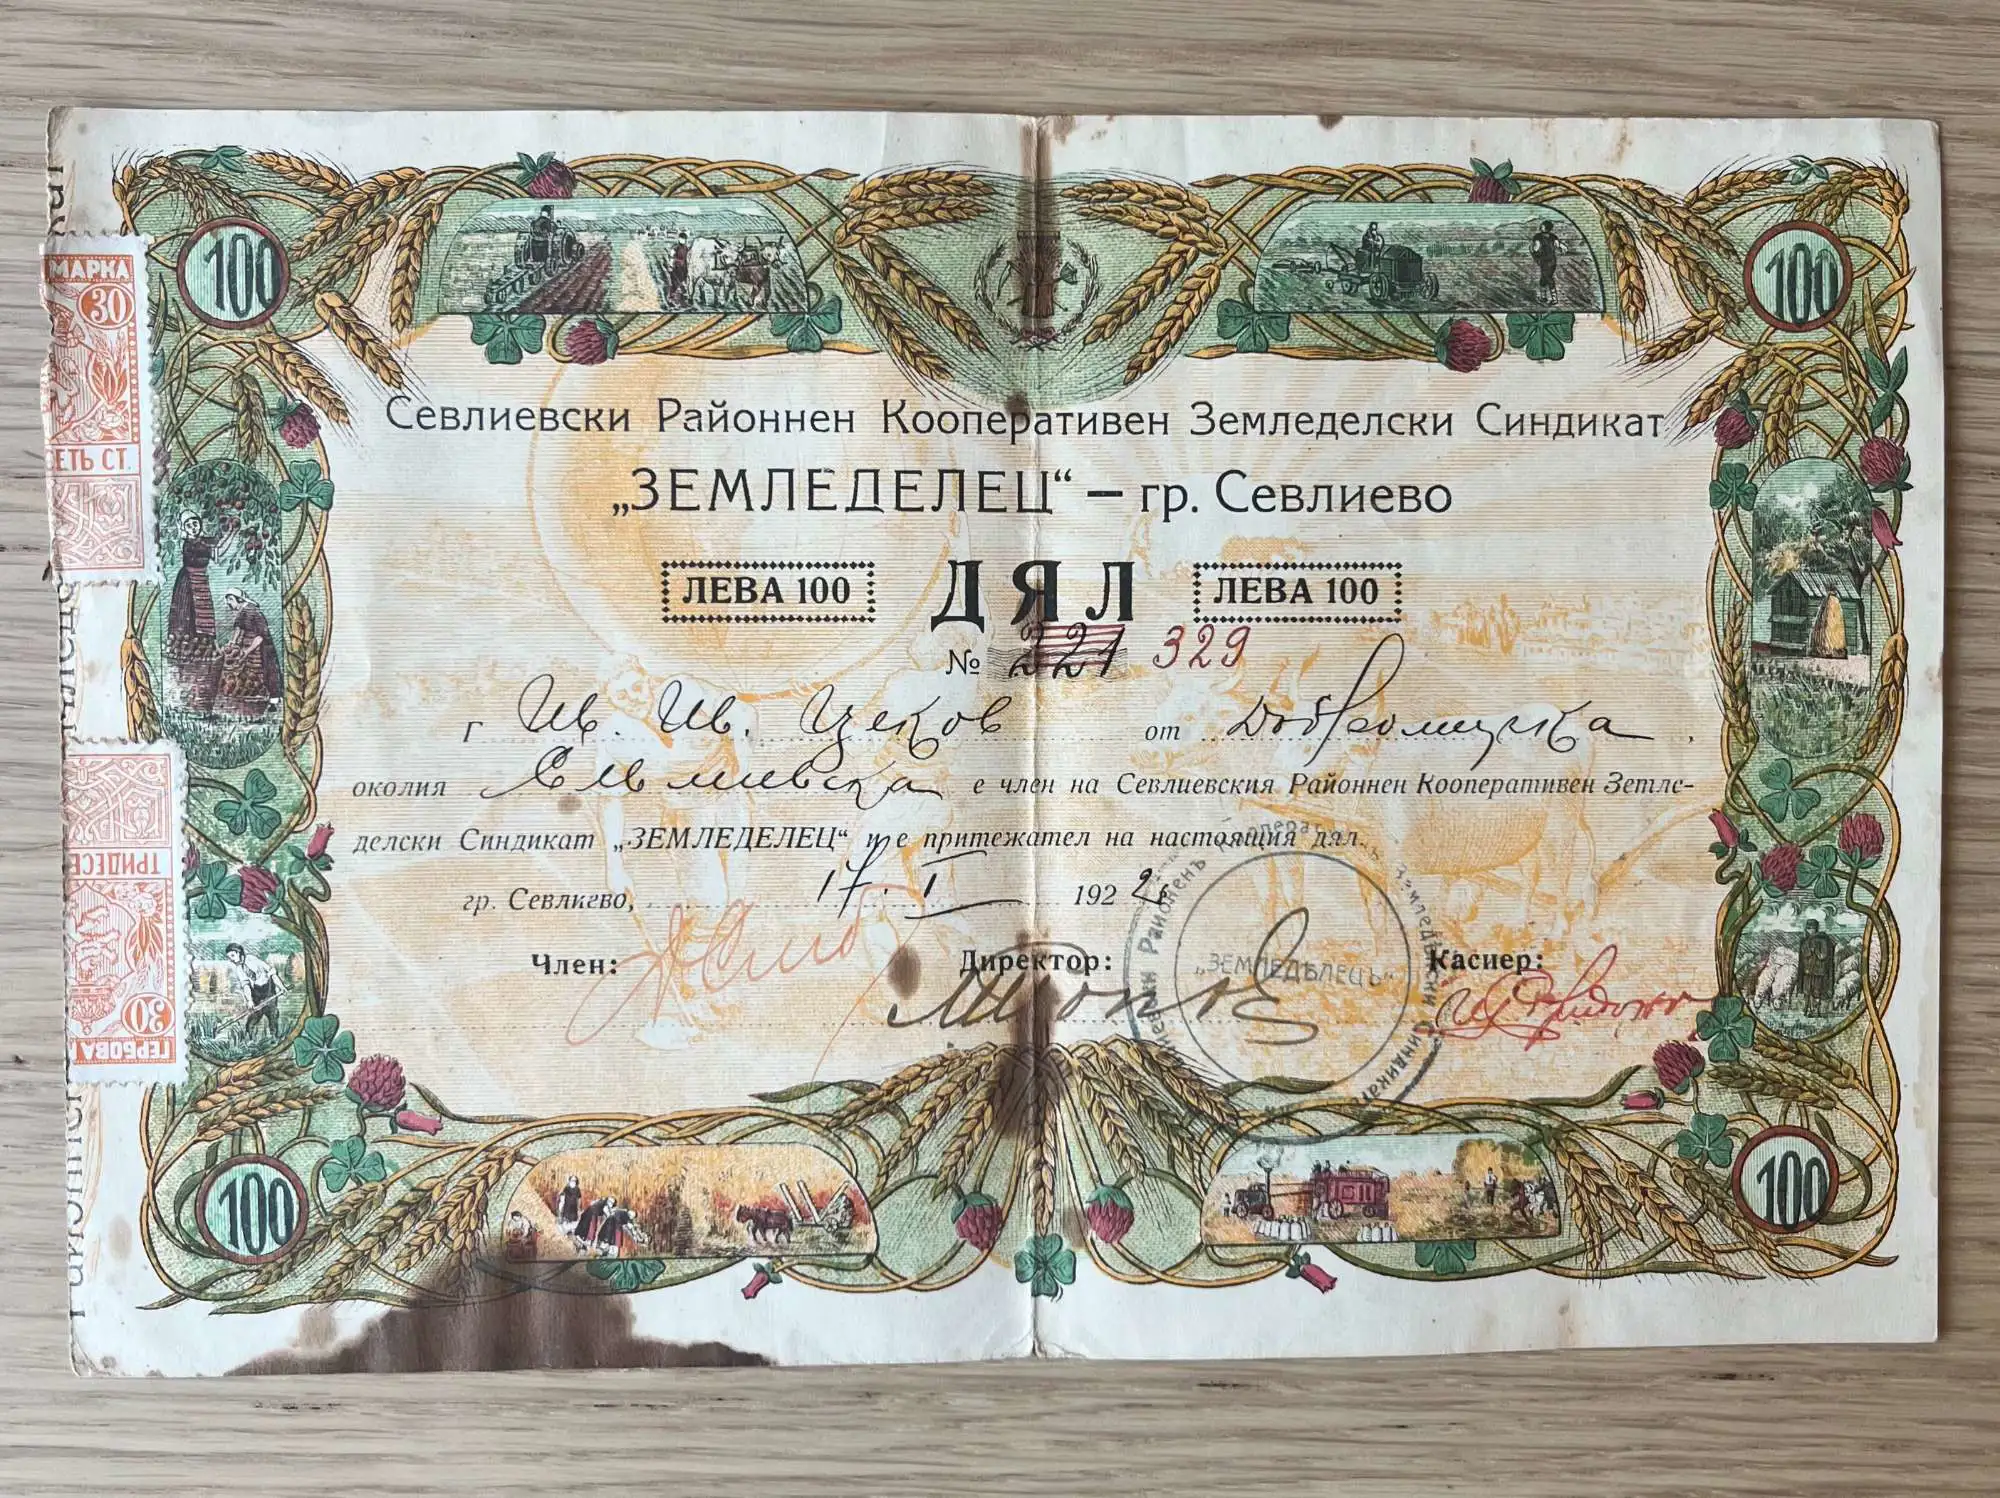 100
100
МАРКА
30
ЕТЬ СТ.
Севлиевски Районнен Кооперативен Земледелски Синдикат
„ЗЕМЛЕДЕЛЕЦ“ — гр. Севлиево
ЛЕВА 100 ДЯЛ ЛЕВА 100
№ 221 329
г Ив. Ив. Цеков от Добромирка,
околия Севлиевска е член на Севлиевския Районнен Кооперативен Земле-
делски Синдикат „ЗЕМЛЕДЕЛЕЦ“ и е притежател на настоящия дял.
гр. Севлиево, 17. I 1926
Член: Директор: Касиер:
Районенъ Кооперативенъ Земледѣлски Синдикатъ
„ЗЕМЛЕДѢЛЕЦЪ“
ТРИДЕСЕ
30
ГЕРБОВА
100
100